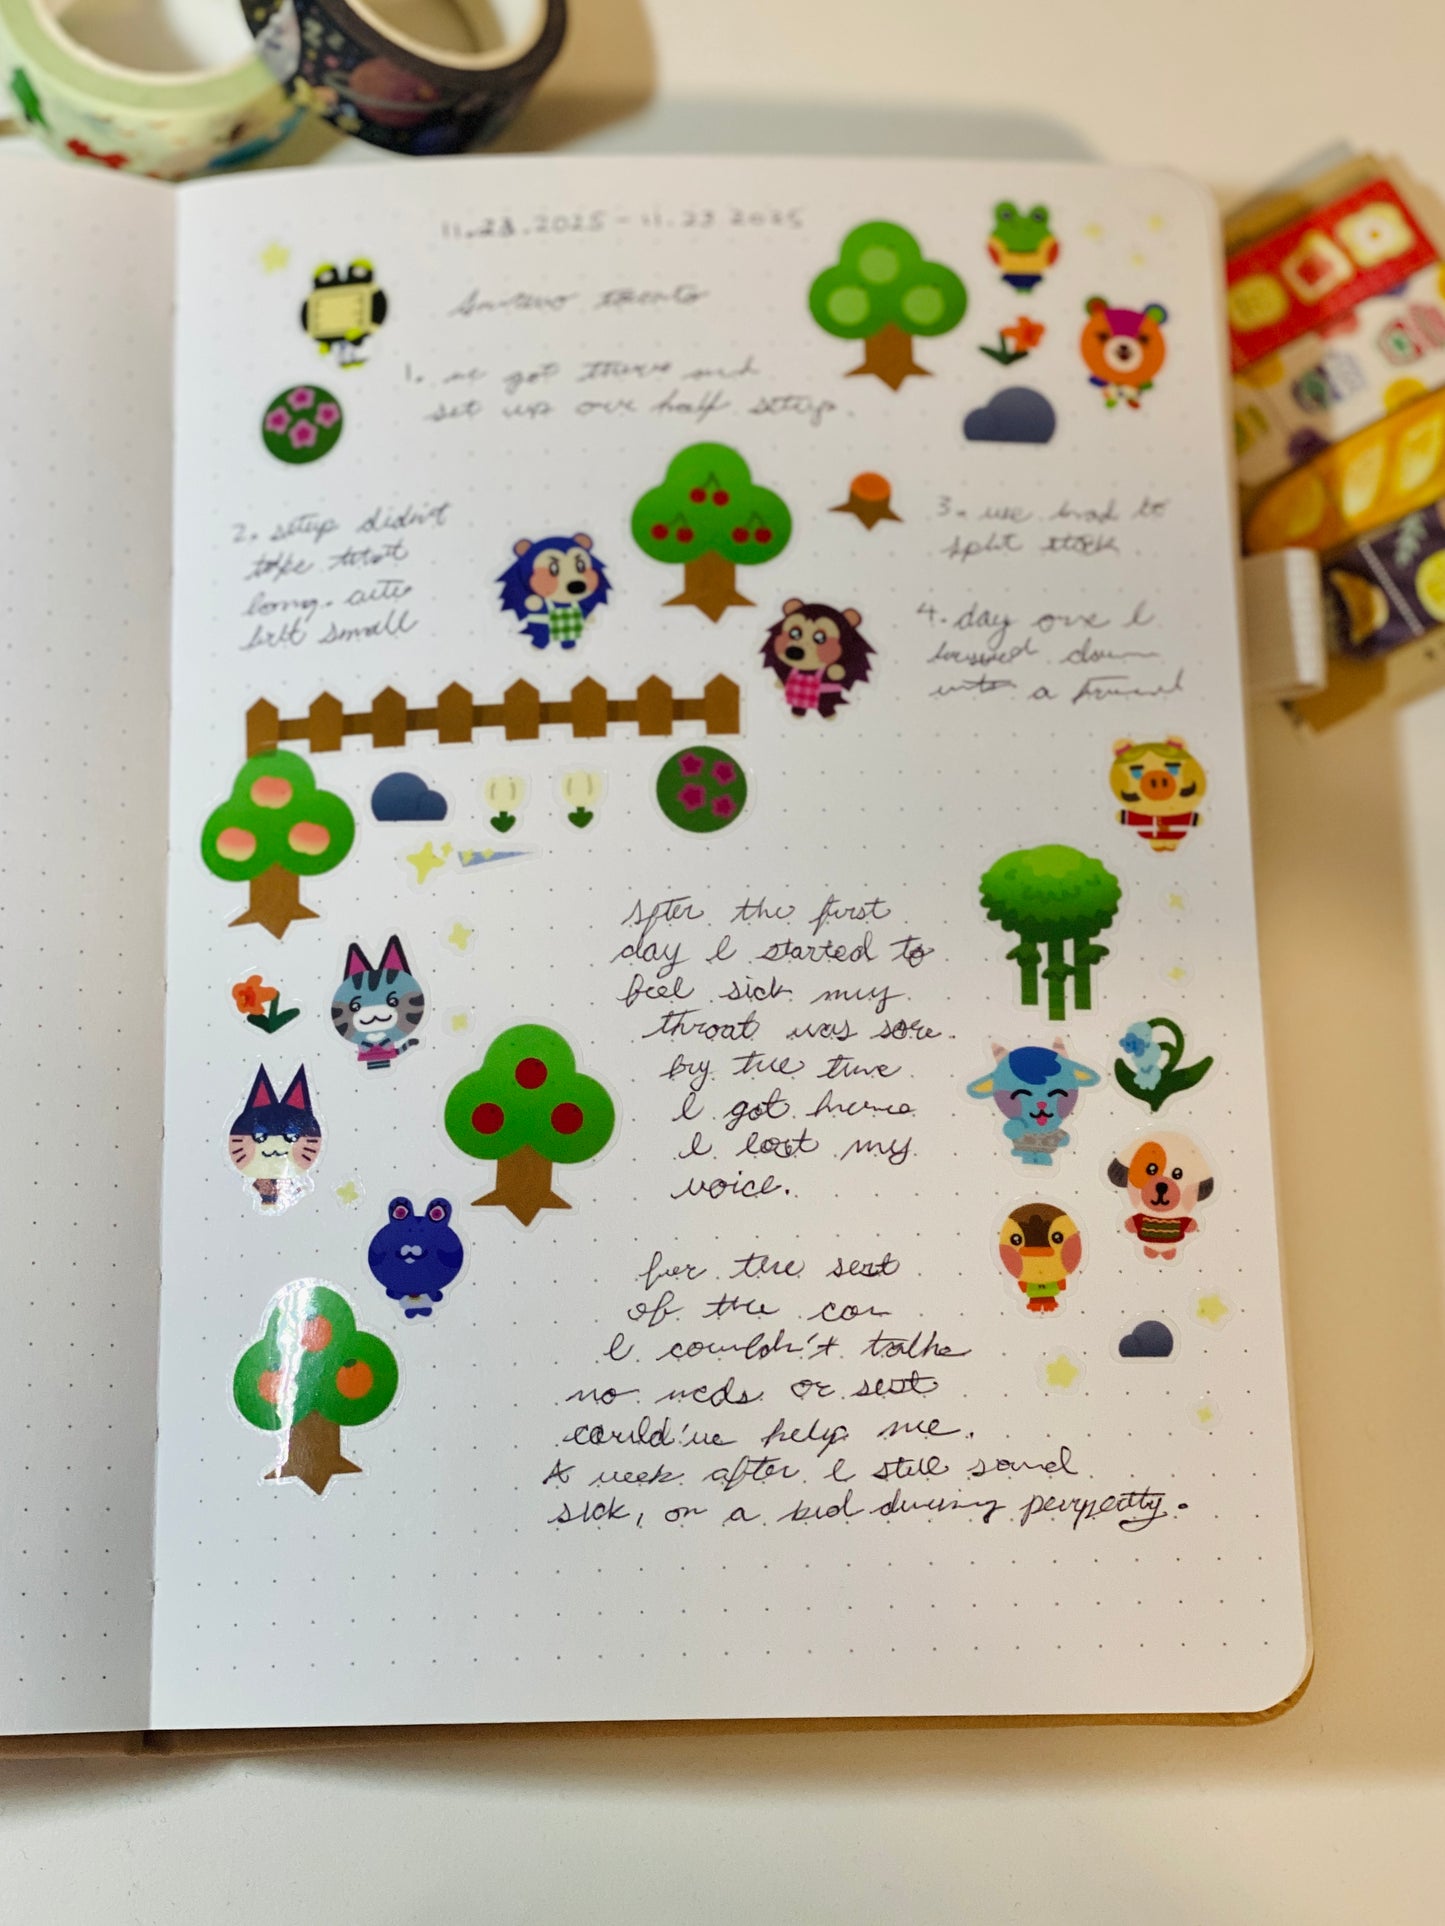 11.23.2025 - 11.23 2025
1. we got there and
set up our half setup.
2. setup didn't
take that
long.
small
3. we had to
split stock
4. day one I
down
into a
After the first
day I started to
feel sick my
throat was sore.
by the time
I got home
I lost my
voice.
for the rest
of the con
I couldn't talk
no meds or rest
could've help me.
A week after I still sound
sick, or a kid during